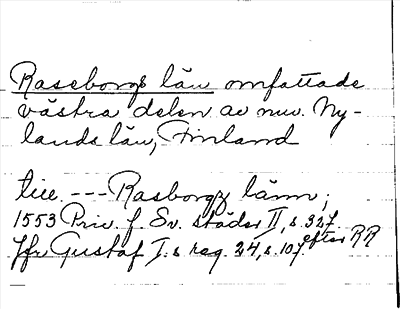 Raseborgs län omfattade
västra delen av nuv. Ny-
lands län, Finland
till --- Rasborgz länn;
1553 Priv. f. Sv. städer II, s. 327. efter RR
Jfr Gustaf I:s reg. 24, s. 107.